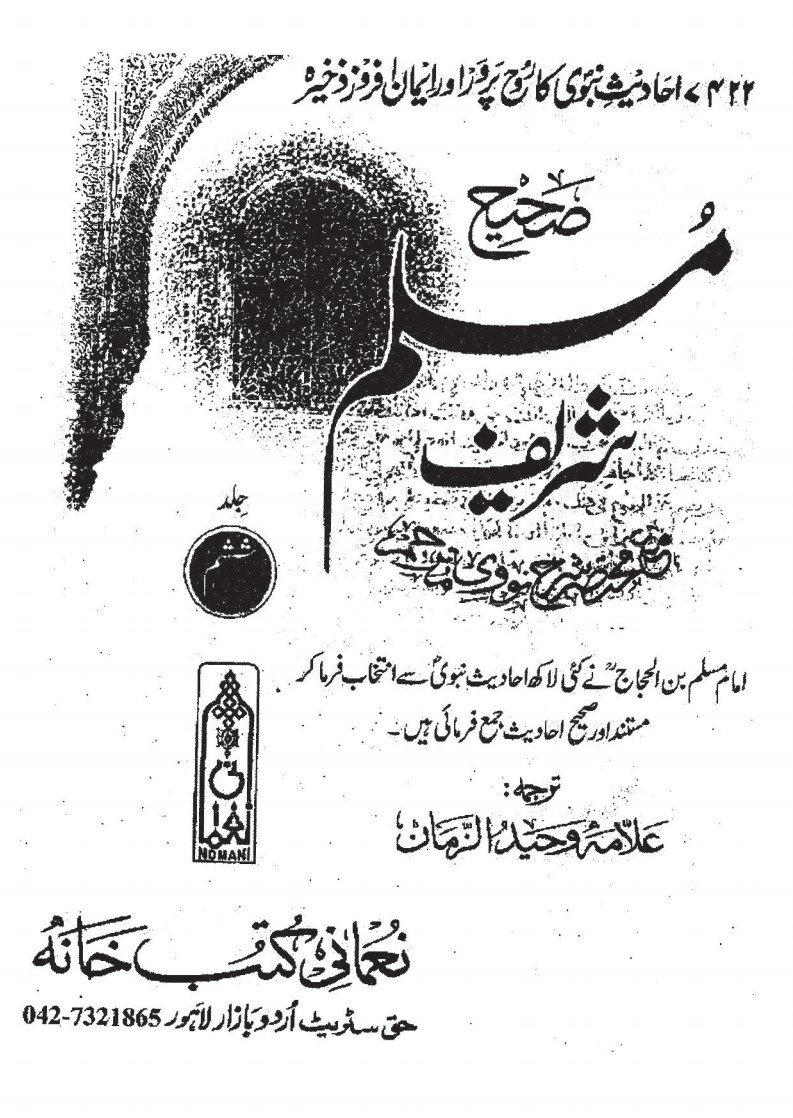 ۷۴۲۲ احادیثِ نبویؐ کا رُوح پرور اور ایمان افروز ذخیرہ
صَحیح
مُسلم
شریف
مع مختصر شرح نووی مترجم
جلد
ششم
امام مسلم بن الحجاجؒ نے کئی لاکھ احادیث نبویؐ سے انتخاب فرما کر
مستند اور صحیح احادیث جمع فرمائی ہیں۔
ترجمہ:
علّامہ وَحیدُ الزّمان
NOMANI
نُعمانی کُتب خَانہ
حق سٹریٹ اُردو بازار لاہور 042-7321865